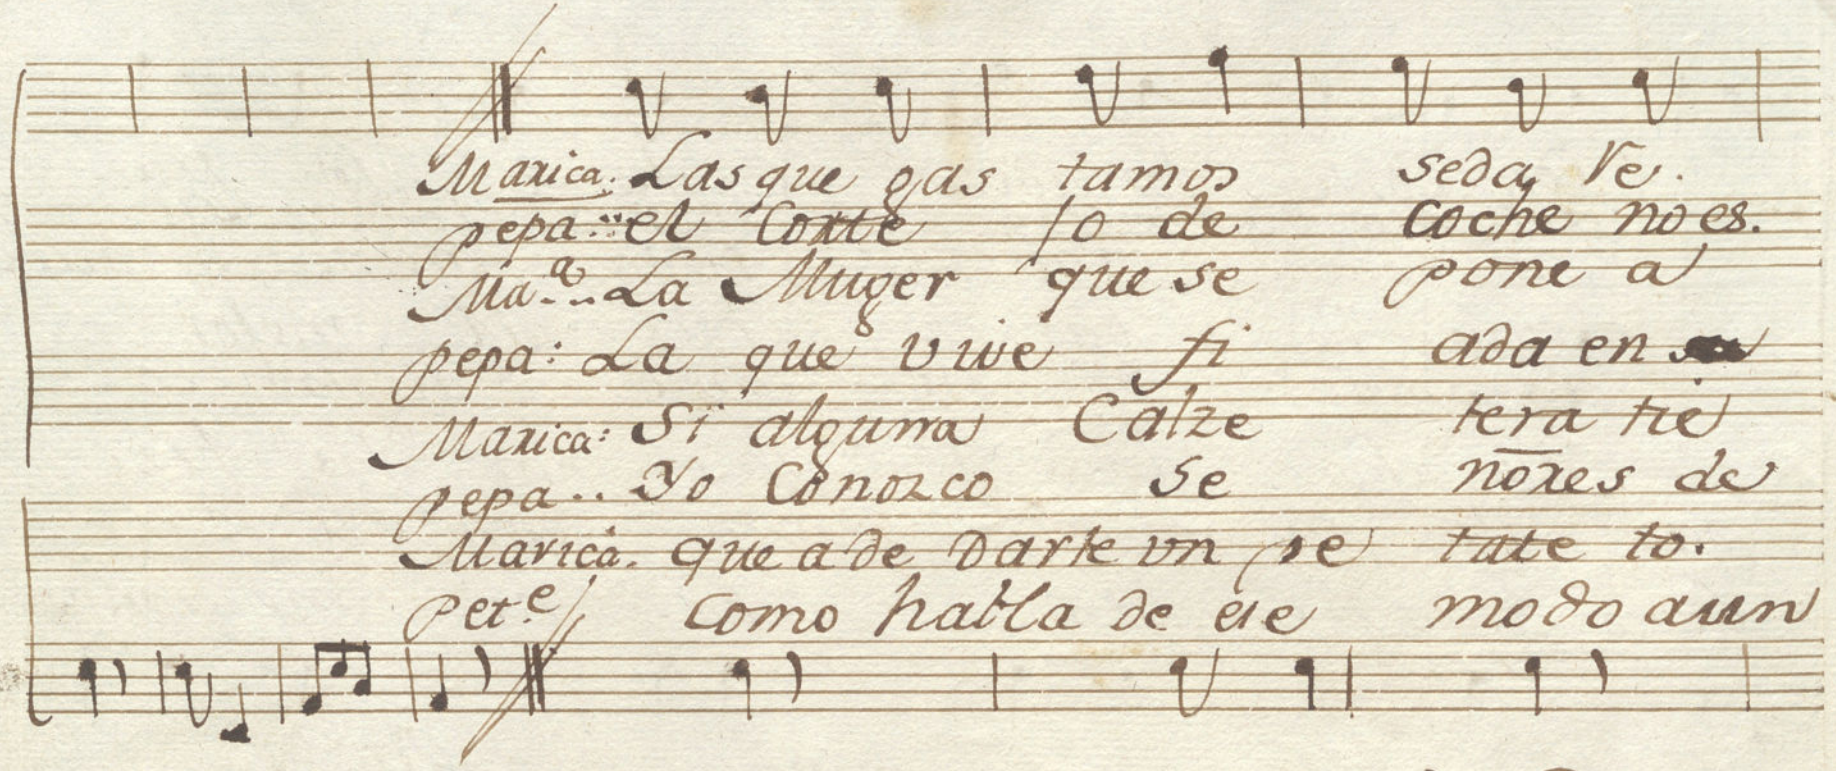 Marica. Las que gas tamos seda Ve.
pepa: el Corte Jo de coche no es.
Ma.ª.. La Muger que se pone a
pepa: La que vive fi ada en
Marica: Si alguna Calze tera tie
pepa.. Yo Conozco Se nores de
Marica. que a de Darte un pe tate to.
Pet.e Como habla de ese modo aun